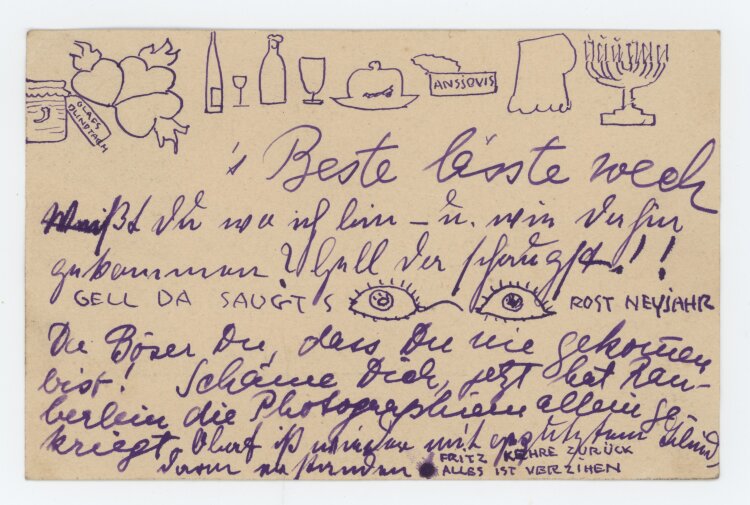 OLAFS
BLINDTARM
ANSJOVIS
's Beste lässte wech
Weißt Du wo ich bin – u. wie daher
gekommen? Gell da schaugst!!
GELL DA SAUGTS ROST NEYJAHR
Du Böser Du, dass Du nie gekom̄en
bist! Schäme Dich, jetzt hat Rau-
berlein die Photographien allein ge-
kriegt. Olaf ist wieder mit Blind
darm
FRITZ KEHRE ZURÜCK
ALLES IST VERZIHEN